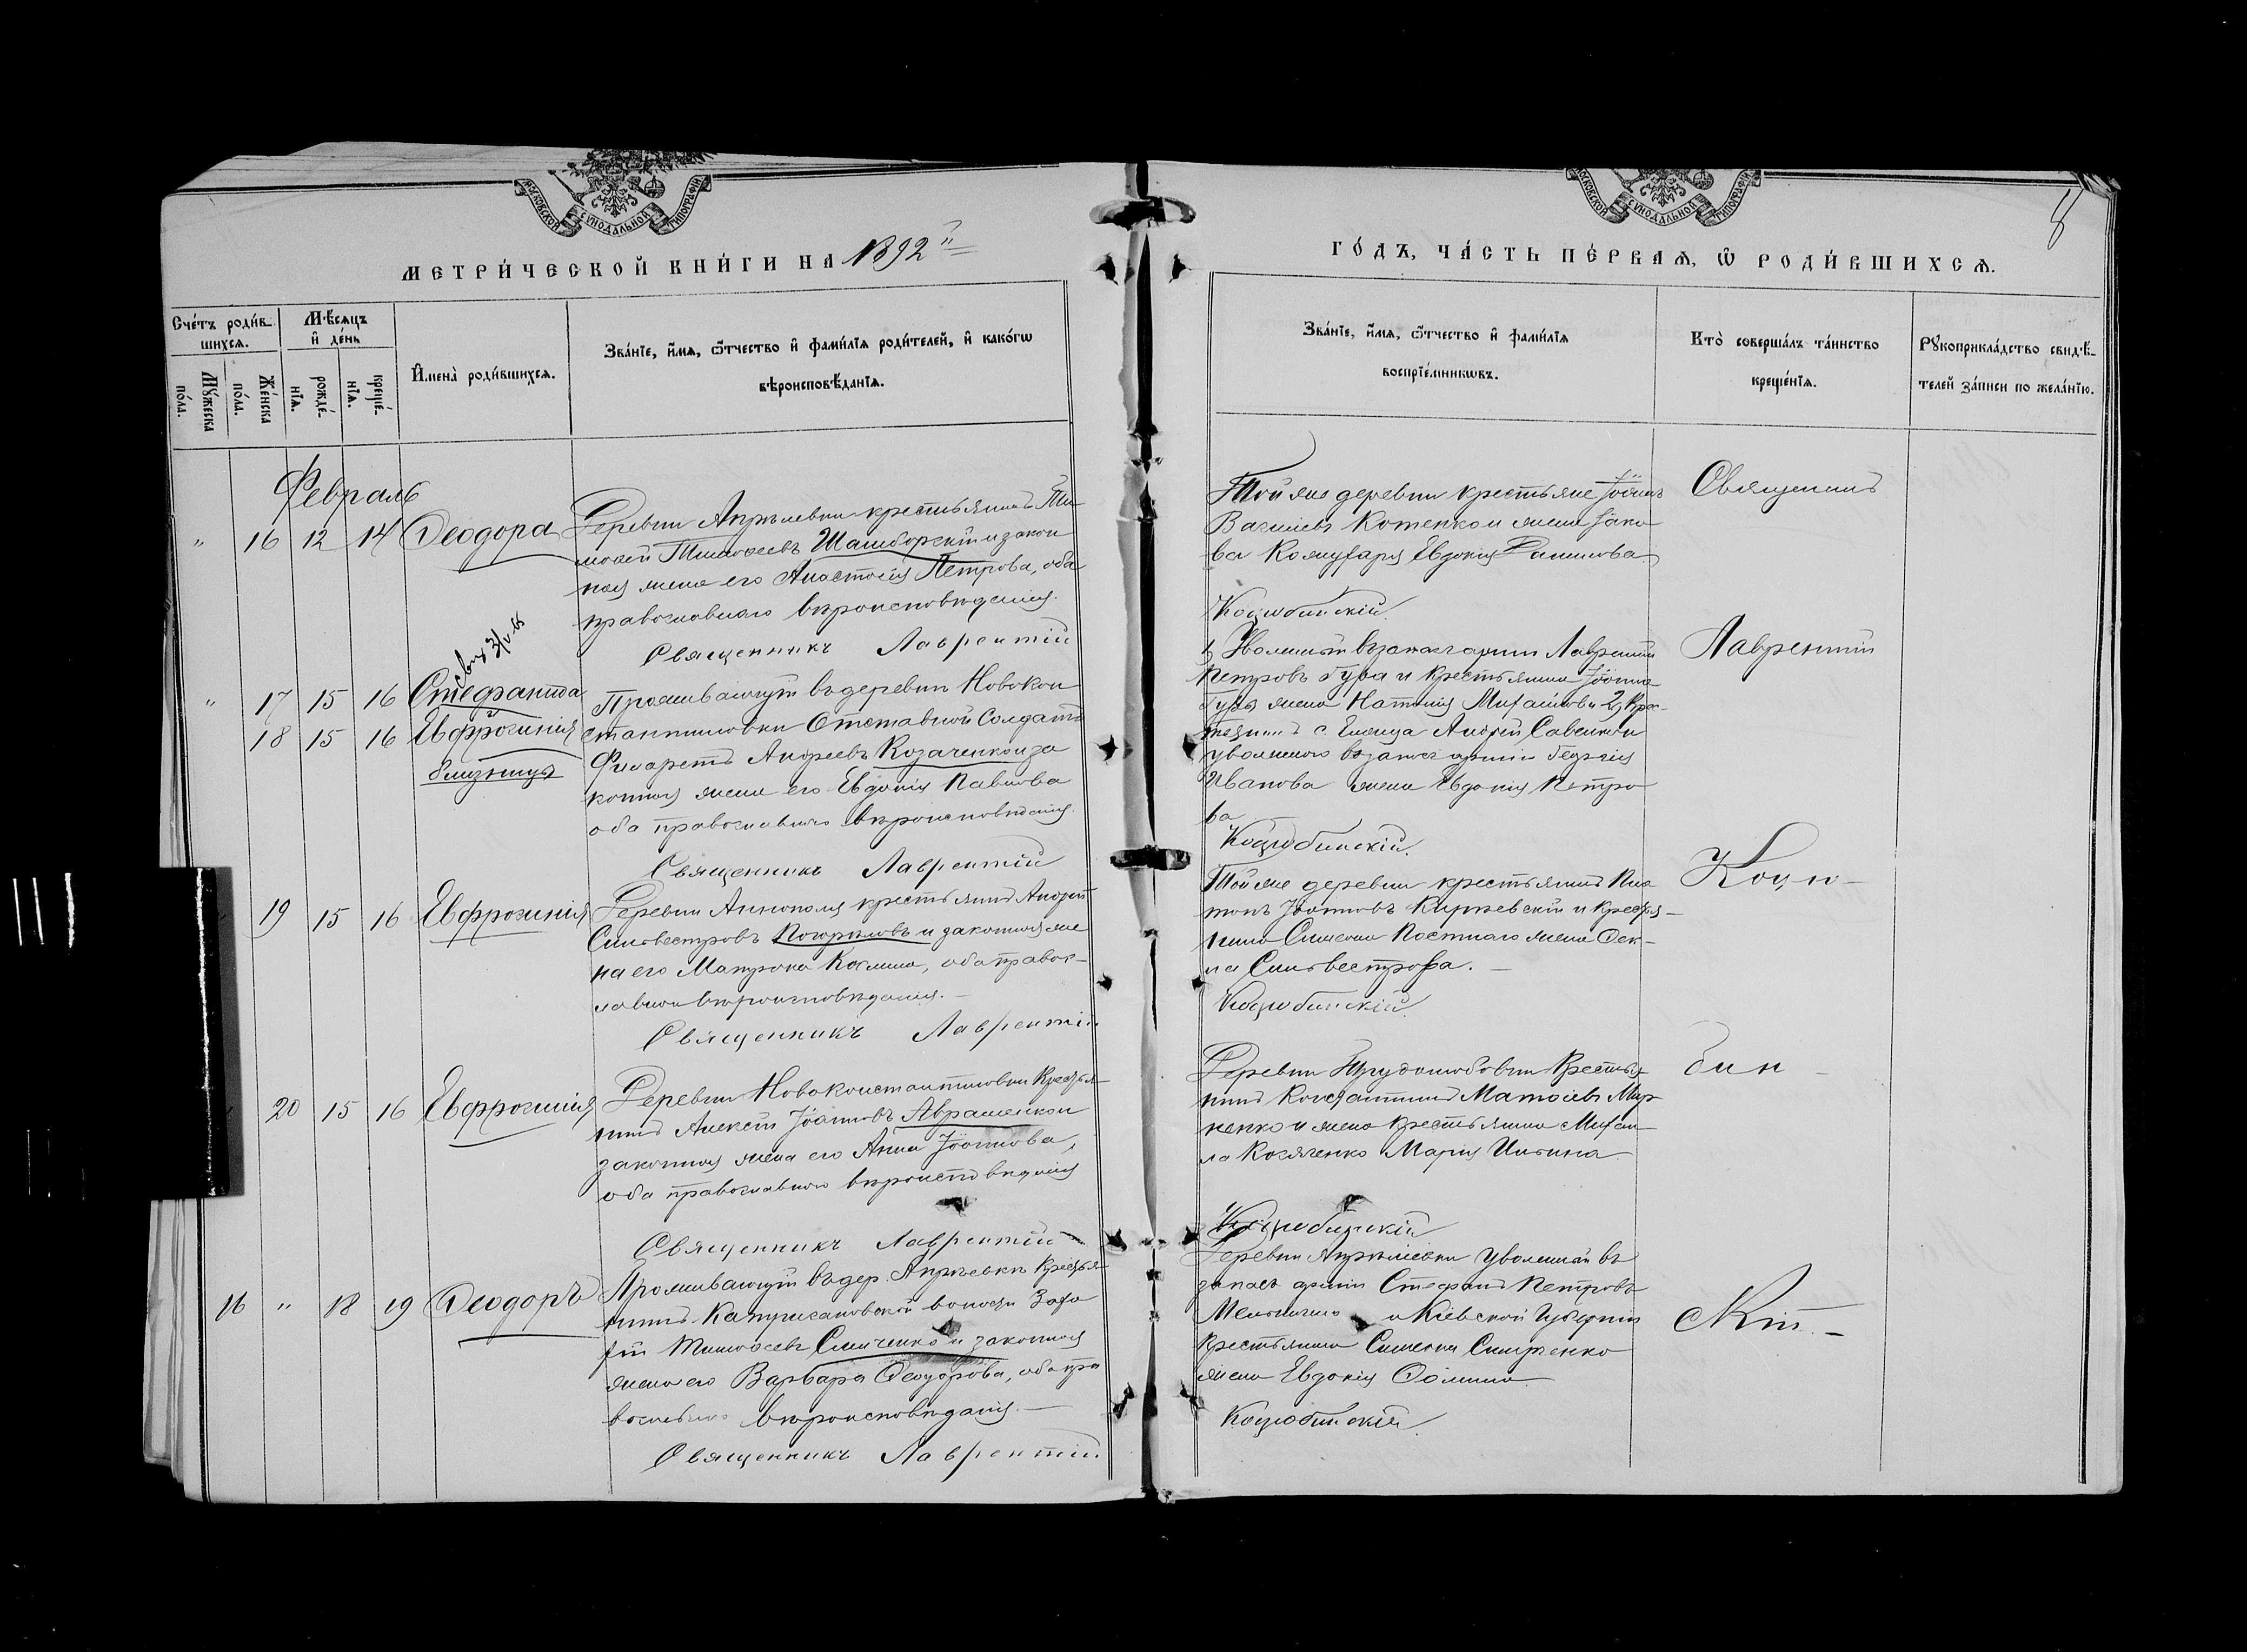 МОСКОВСКОЙ СѴНОДАЛЬНОЙ ТИПОГРАФІИ
МЕТРИ́ЧЕСКОЙ КНИ́ГИ НА 1892й
Сче́тъ роди́вшихсѧ.
Мѣ́сѧцъ и҆ де́нь
Мꙋ́жеска по́ла.
Же́нска по́ла.
рожде́нїѧ.
креще́нїѧ.
И҆мена̀ роди́вшихсѧ.
Зва́нїе, и҆́мѧ, ѻ҆́тчество и҆ фами́лїѧ роди́телей, и҆ како́гѡ
вѣроисповѣ́данїѧ.
Февраль
" 16 12 14 Ѳеодора
Деревни Апрѣлевки крестьянинъ Ти
моѳей Тимоѳеевъ и закон
ная жена его Анастасія Петрова, оба
православнаго вѣроисповѣданія.
Священникъ Лаврентій
" 17 15 16 Стефанида
18 15 16 Евфросинія
близнецы
Проживающій въ деревнѣ Новокон
стантиновки Отставной Солдатъ
Филаретъ Андреевъ Козаченко и за
конная жена его Евдокія Павлова
оба православнаго вѣроисповѣданія.
Священникъ Лаврентій
19 15 16 Евфросинія
Деревни Аннополя крестьянинъ Андрей
Сильвестровъ и законная же
на его Матрона Косьмина, оба правос-
лавнаго вѣроисповѣданія.
Священникъ Лаврентій
20 15 16 Евфросинія
Деревни Новоконстантиновки Крестья
нинъ Алексѣй Іоанновъ Авраменко и
законная жена его Анна Іоаннова,
оба православнаго вѣроисповѣданія
Священникъ Лаврентій
16 " 18 19 Ѳеодоръ
Проживающій въ дер. Апрѣлевкѣ Крестья
нинъ волости Заха
рій Тимоѳеевъ и законная
жена его Варвара Ѳеодорова, оба пра
вославнаго вѣроисповѣданія.
Священникъ Лаврентій.
МОСКОВСКОЙ СѴНОДАЛЬНОЙ ТИПОГРАФІИ
8
ГО́ДЪ, ЧА́СТЬ ПЕ́РВАѦ, Ѡ҆ РОДИ́ВШИХСѦ.
Зва́нїе, и҆́мѧ, ѻ҆́тчество и҆ фами́лїѧ
воспрїе́мникѡвъ.
Кто̀ соверша́лъ та́инство
креще́нїѧ.
Рꙋкоприкла́дство свидѣ́-
телей за́писи по жела́нїю.
Той же деревни крестьяне Іоаннъ
Васильевъ Котенко и жена Іако
ва Евдокія
Коцюбинскій
1) Уволенный въ запасъ арміи Лаврентій
Петровъ Гура и Крестьянина Іоанна
Гуры жена Наталія Михайлова 2) Крес
с. Андрей Савенко и
уволеннаго въ запасъ арміи Георгія
Иванова жена Евдокія Петро
ва
Коцюбинскій.
Той же деревни крестьянинъ Пла
тонъ Іоанновъ и крестья
нина Симеона Постнаго жена Ѳек-
ла Сильвестрова.
Коцюбинскій.
Деревни Трудолюбовки Крестья
нинъ Константинъ Матѳіевъ
и жена крестьянина Михаи
ла Косяченко Марія
Коцюбинскій
Деревни Апрѣлевки уволенный въ
запасъ арміи Стефанъ Петровъ
и Кіевской Губерніи
крестьянина Симеона
жена Евдокія Ѳомина
Коцюбинскій.
Священникъ
Лаврентій
Коцю-
бин-
скій.